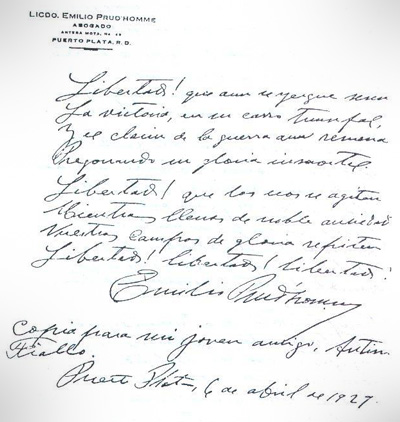 LICDO. EMILIO PRUD'HOMME
ABOGADO
ANTERA MOTA, No
PUERTO PLATA, R. D.
Libertad! que aun se yergue serena
La victoria, en su carro triunfal,
Y el clarin de la guerra aun resuena
Pregonando su gloria inmortal.
Libertad! que los ecos se agiten
Mientras llenos de noble ansiedad
Nuestros campos de gloria repiten
Libertad! libertad! libertad!
Emilio Prud'homme
Copia para mi joven amigo,
Fiallo.
Puerto Plata, 6 de abril de 1927.